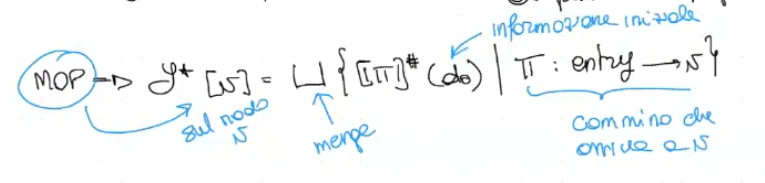 informazione iniziale
MOP → 𝓘* [v] = ⊔ { [[π]]# (d₀) | π : entry → v }
sul nodo v
merge
cammino che
arriva a v